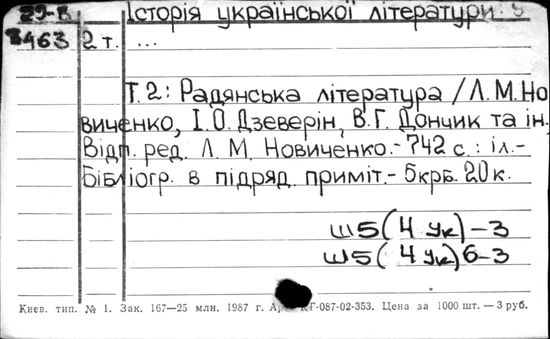 Історія української літератури: У
3463 2 т. ...
Т. 2: Радянська література / Л. М. Но
виченко, І. О. Дзеверін, В. Г. Дончик та ін.
Відп. ред. Л. М. Новиченко.- 742 с. : іл.-
Бібліогр. в підряд. приміт.- 5крб. 20к.
Ш5(4 Ук)-3
Ш5(4 Ук)6-3
Киев. тип. № 1. Зак. 167—25 млн. 1987 г. КГ-087-02-353. Цена за 1000 шт. — 3 руб.